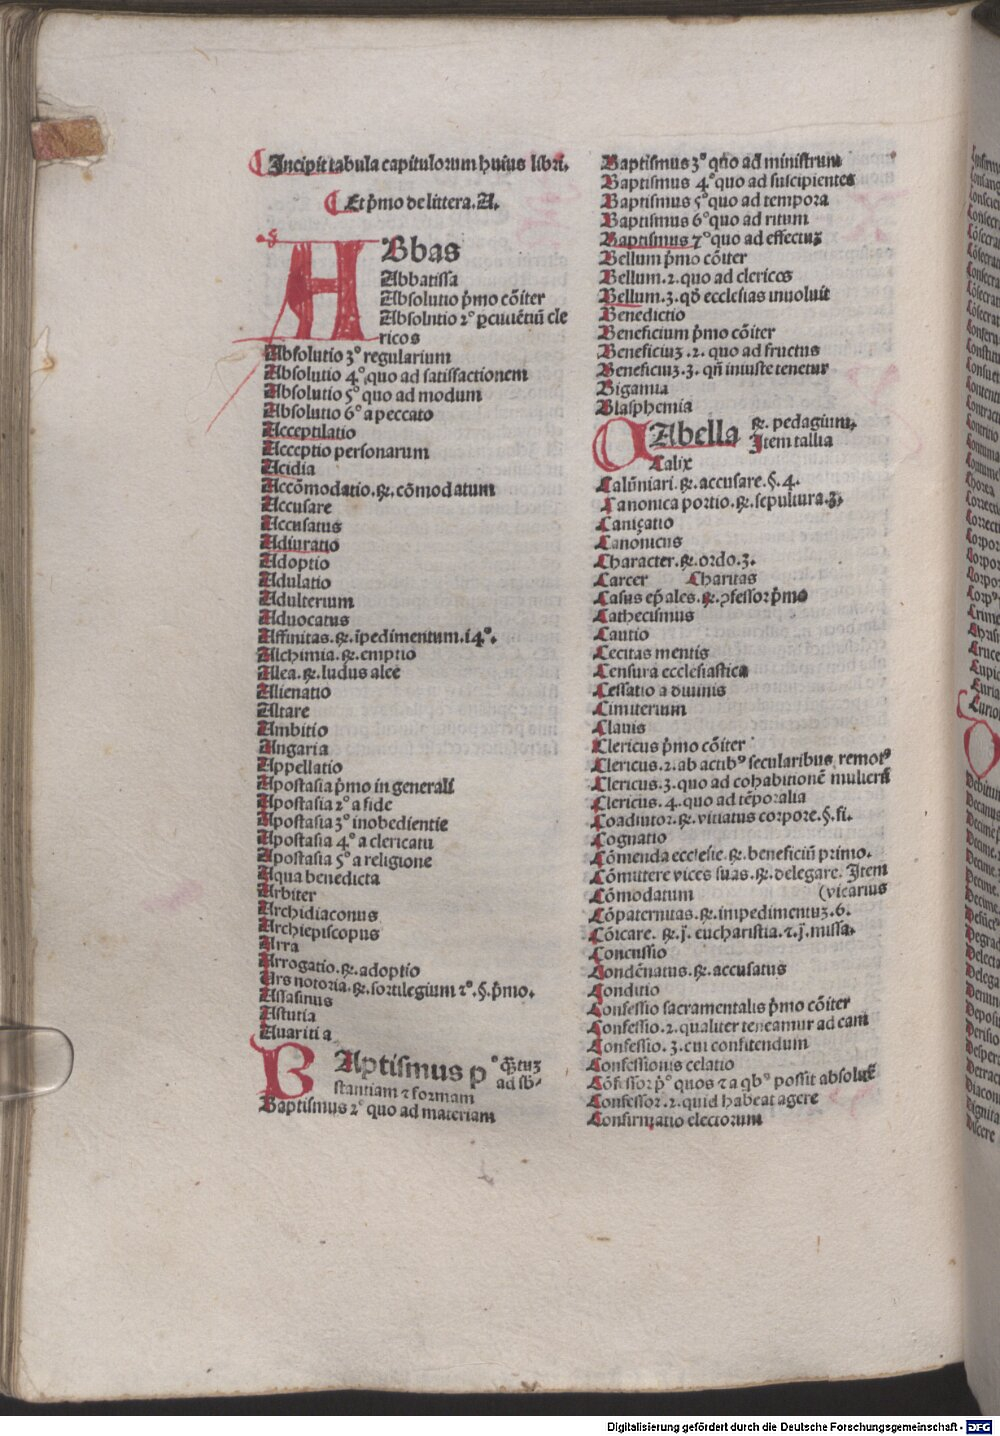 Incipit tabula capitulorum huius libri.
Et p̄mo de littera. A.
ABbas
Abbatissa
Absolutio p̄mo cōiter
Absolutio 2° ꝑcutiētiū cle
ricos
Absolutio 3° regularium
Absolutio 4° quo ad satisfactionem
Absolutio 5° quo ad modum
Absolutio 6° a peccato
Acceptilatio
Acceptio personarum
Acidia
Accōmodatio. ⁊c. cōmodatum
Accusare
Accusatus
Adiuratio
Adoptio
Adulatio
Adulterium
Aduocatus
Affinitas. ⁊c. īpedimentum. i4°.
Alchimia. ⁊c. emptio
Alea. ⁊c. ludus alee
Alienatio
Altare
Ambitio
Angaria
Appellatio
Apostasia p̄mo in generali
Apostasia 2° a fide
Apostasia 3° inobedientie
Apostasia 4° a clericatu
Apostasia 5° a religione
Aqua benedicta
Arbiter
Archidiaconus
Archiepiscopus
Arra
Arrogatio. ⁊c. adoptio
Ars notoria. ⁊c. sortilegium 2°. §. p̄mo.
Assasinus
Astutia
Auaritia
BAptismus p° q̄tuꝫ
ad sb-
stantiam ⁊ formam
Baptismus 2° quo ad materiam
Baptismus 3° quo ad ministrum
Baptismus 4° quo ad suscipientes
Baptismus 5° quo ad tempora
Baptismus 6° quo ad ritum
Baptismus 7° quo ad effectuꝫ
Bellum p̄mo cōiter
Bellum. 2. quo ad clericos
Bellum. 3. qđ ecclesias inuoluit
Benedictio
Beneficium p̄mo cōiter
Beneficiuꝫ. 2. quo ad fructus
Beneficiuꝫ. 3. qñ iniuste tenetur
Bigamia
Blasphemia
CAbella ⁊c. pedagium.
Item tallia
Calix
Calūniari. ⁊c. accusare. §. 4.
Canonica portio. ⁊c. sepultura. 3.
Canizatio
Canonicus
Character. ⁊c. ordo. 3.
Carcer Charitas
Casus ep̄ales. ⁊c. ꝯfessor p̄mo
Cathecismus
Cautio
Cecitas mentis
Censura ecclesiastica
Cessatio a diuinis
Cimiterium
Clauis
Clericus p̄mo cōiter
Clericus. 2. ab actibꝰ secularibus remotꝰ
Clericus. 3. quo ad cohabitionē mulierū
Clericus. 4. quo ad tēporalia
Coadiutor. ⁊c. vitiatus corpore. §. fi.
Cognatio
Cōmenda ecclesie. ⁊c. beneficiū primo.
Cōmittere vices suas. ⁊c. delegare. Item
Cōmodatum (vicarius
Cōpaternitas. ⁊c. impedimentuꝫ. 6.
Cōicare. ⁊c. j. eucharistia. ⁊. j. missa.
Concussio
Condēnatus. ⁊c. accusatus
Conditio
Confessio sacramentalis p̄mo cōiter
Confessio. 2. qualiter teneamur ad eam
Confessio. 3. cui confitendum
Confessionis celatio
Cōfessor p° quos ⁊ a qbꝰ possit absoluē
Confessor. 2. quid habeat agere
Confirmatio electorum
Digitalisierung gefördert durch die Deutsche Forschungsgemeinschaft - DFG